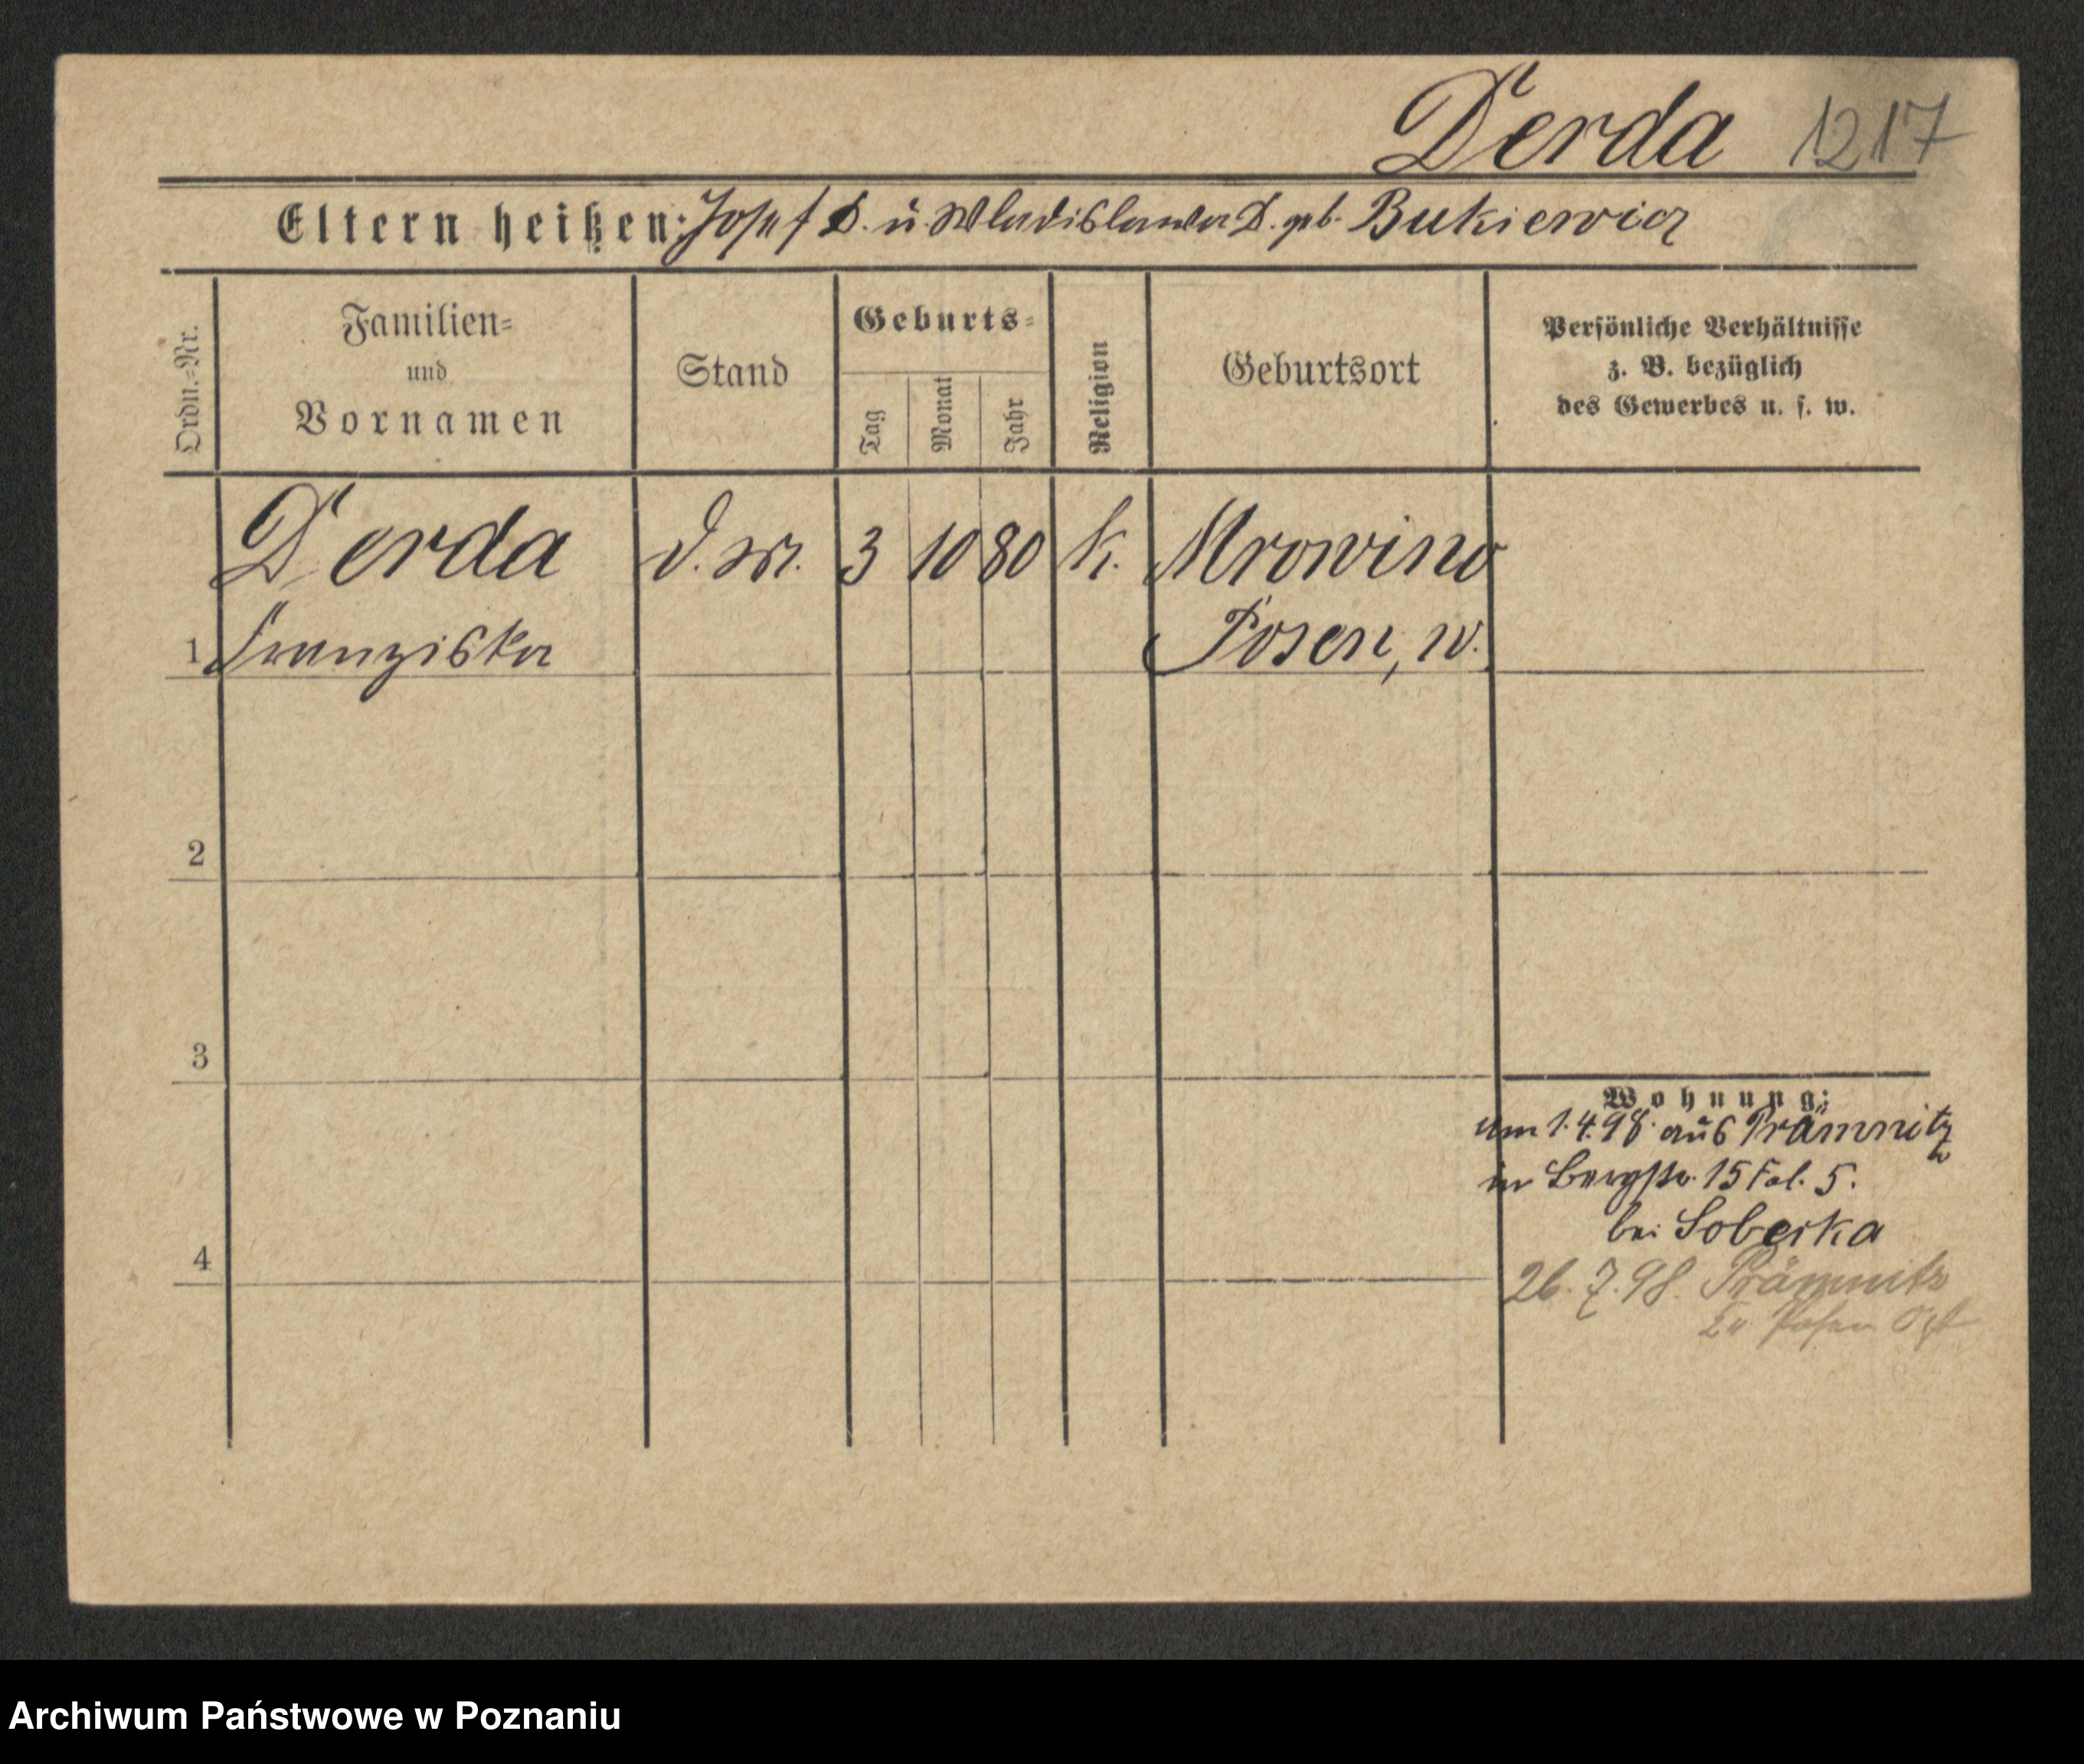 Derda 1217
Eltern heißen: Josef D. u. Wladislawa D. geb. Bukiewicz
Ordn.-Nr.
Familien-
und
Vornamen
Stand
Geburts-
Tag
Monat
Jahr
Religion
Geburtsort
Persönliche Verhältnisse
z. B. bezüglich
des Gewerbes u. s. w.
Derda d. M. 3 10 80 k. Mrowino
1 Franziska Posen, W.
2
3
4
Wohnung:
am 1.4.98. aus Prämnitz
in Bergstr. 15 5.
bei Soberka
26.7.98. Prämnitz
Posen Ost
Archiwum Państwowe w Poznaniu